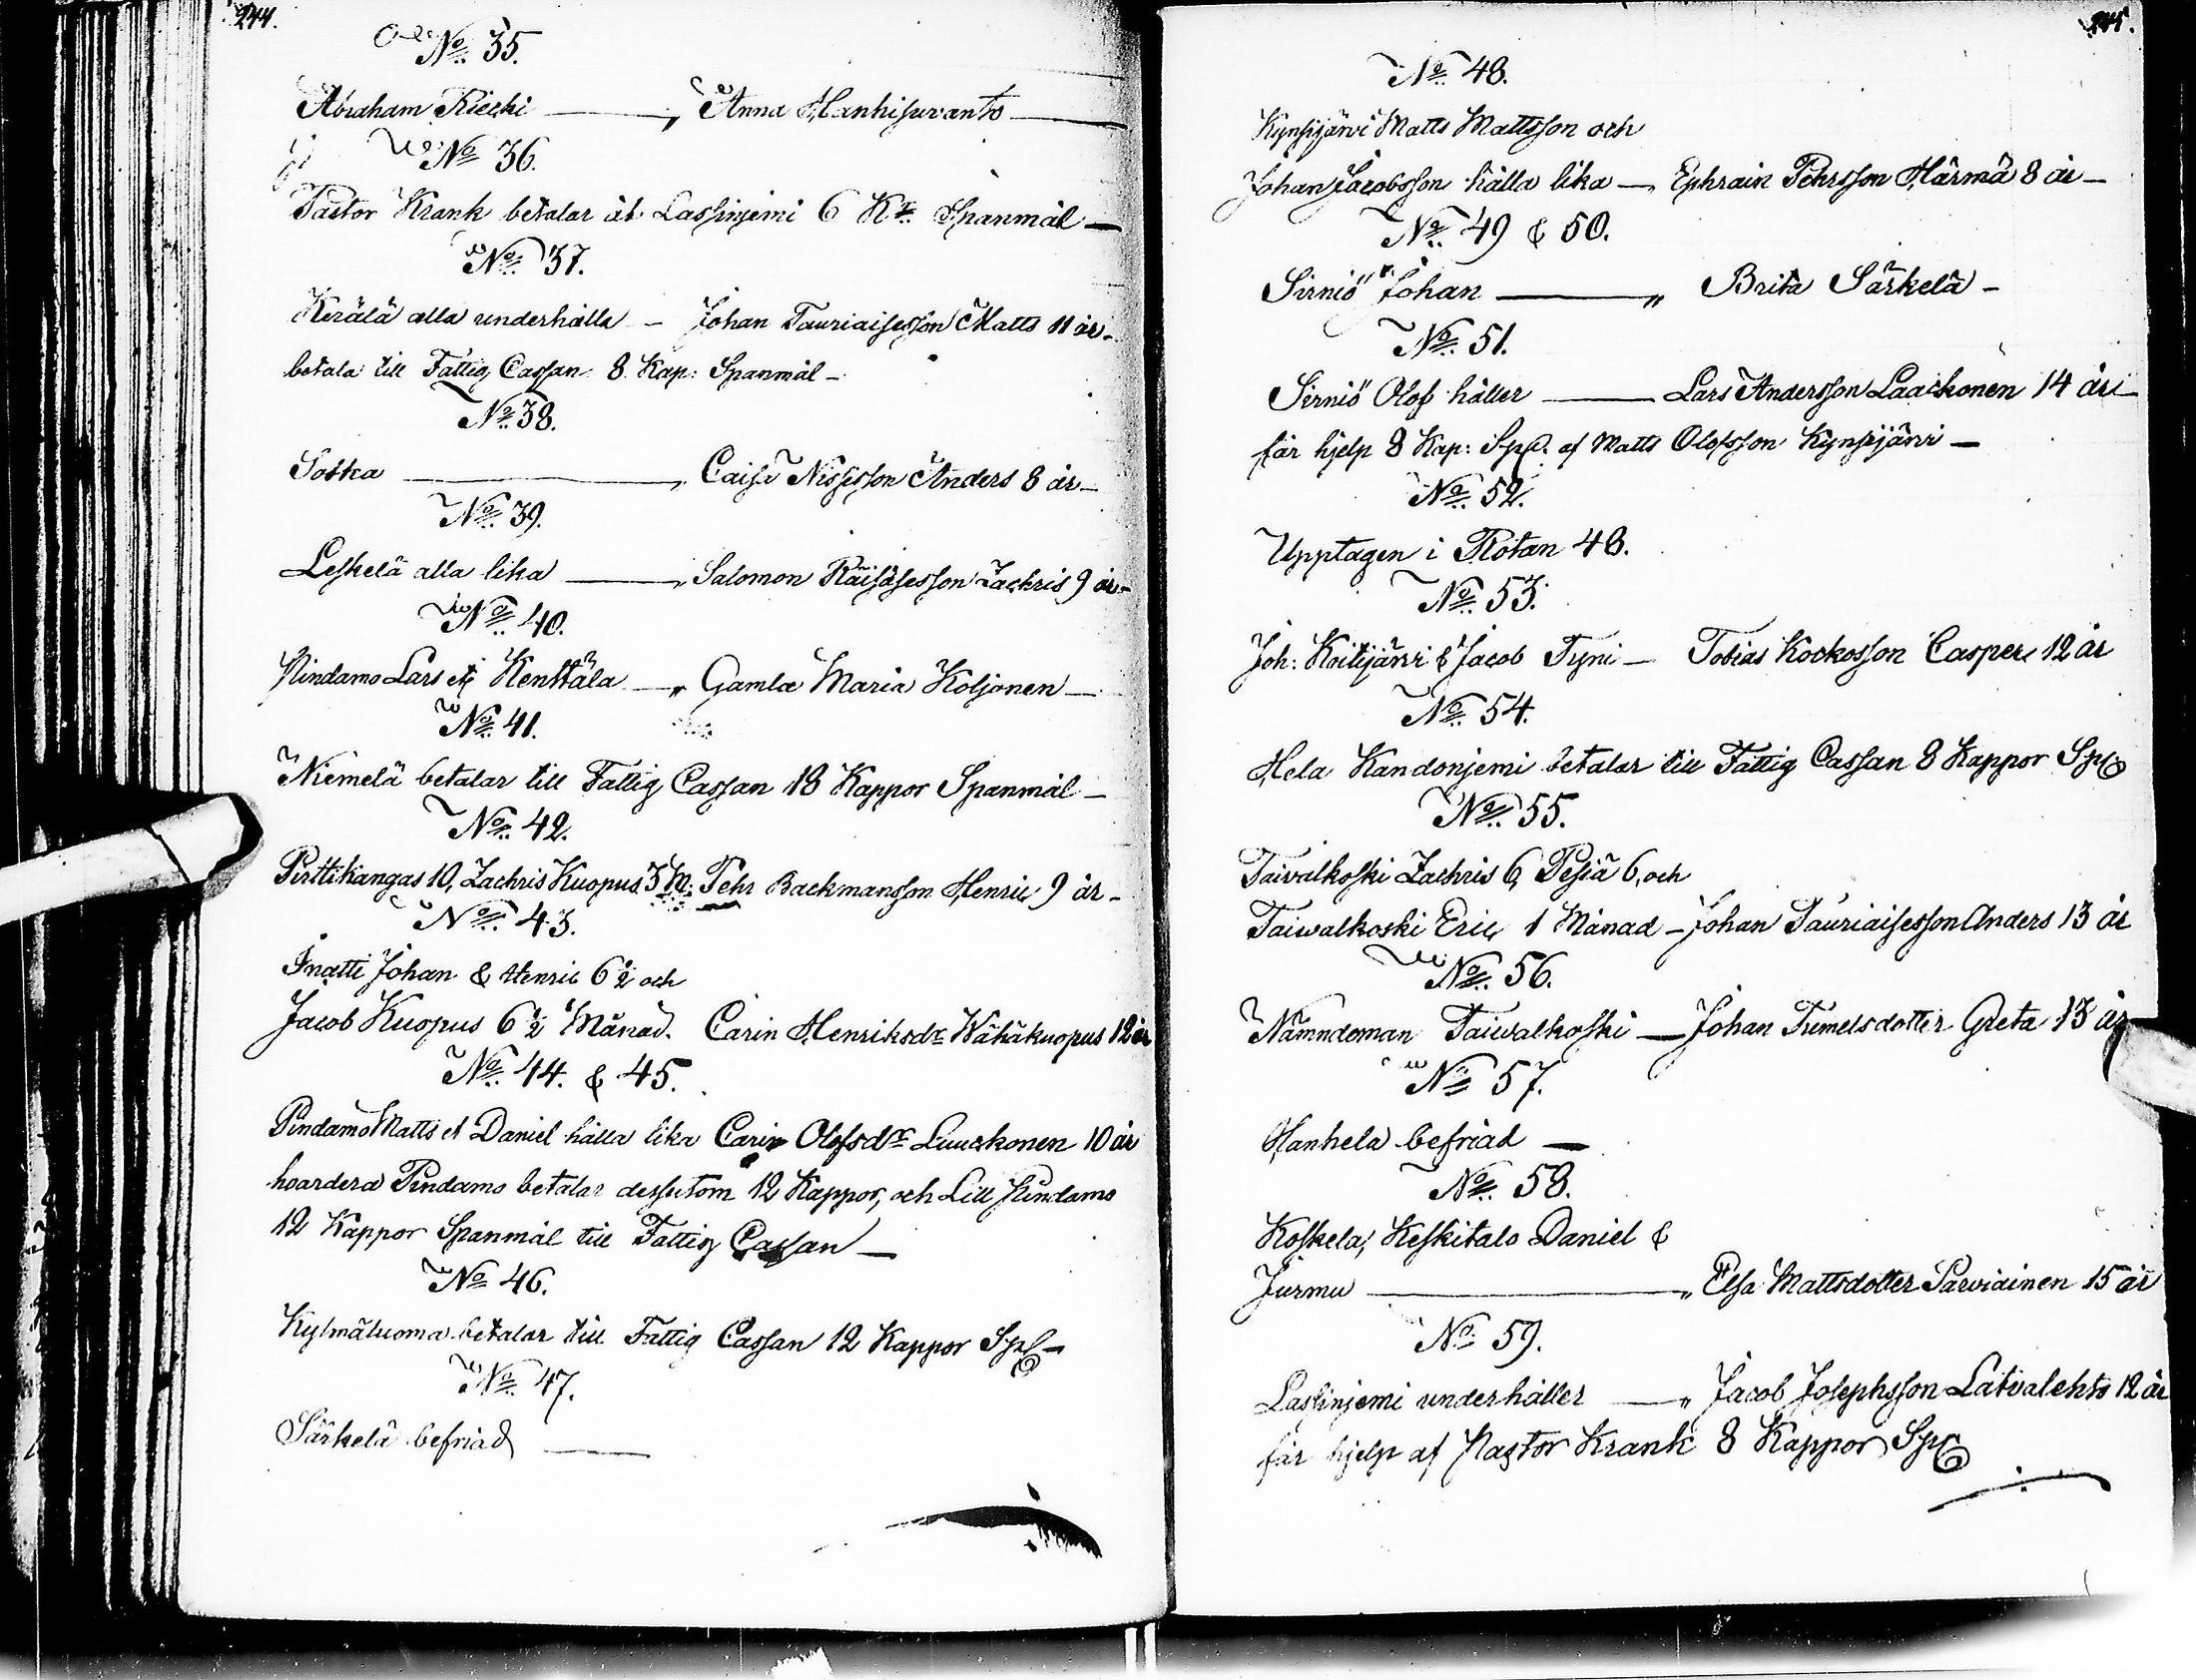 244.
No 35.
Abraham Riecki — " Anna Hanhisuvanto —
No 36.
Pastor Krank betalar åt Lassinjemi 6 Kr Spanmål —
No 37.
Kerälä alla underhålla — Johan Tauriaisesson Matts 11 år —
betala till Fattig Cassan 8 Kap: Spanmål —
No 38.
Sotka — " Caisa Nissesson Anders 8 år —
No 39.
Leskelä alla lika — " Salomon Räisäsesson Zachris 9 år —
No 40.
Pindamo Lars et Kenttälä — " Gamla Maria Koljonen —
No 41.
Niemelä betalar till Fattig Cassan 18 Kappor Spanmål —
No 42.
Pirttikangas 10, Zachris Kuopus 3 M: Pehr Backmansson Henric 9 år —
No 43.
Inatti Johan & Henric 6 1/2 och
Jacob Kuopus 6 1/2 Månad. Carin Henriksdr Wähäkuopus 12 år
No 44. & 45.
Pindamo Matts et Daniel hålla lika Carin Olofsdr Luuckonen 10 år
hvardera Pindamo betalar dessutom 12 Kappor, och Lill Pindamo
12 Kappor Spanmål till Fattig Cassan —
No 46.
Kylmäluoma betalar till Fattig Cassan 12 Kappor Sp —
No 47.
Särkelä befriad —
245.
No 48.
Kynsijärvi Matts Mattsson och
Johan Jacobsson hålla lika — " Ephraim Pehrsson Härmä 8 år —
No 49 & 50.
Sirniö Johan — " Brita Särkelä —
No 51.
Sirniö Olof håller — Lars Andersson Laackonen 14 år —
får hjelp 8 Kap: Sp. af Matts Olofsson Kynsijärvi —
No 52.
Upptagen i Rotan 48.
No 53.
Joh: Koitijärvi & Jacob Tyni — Tobias Kockosson Casper 12 år
No 54.
Hela Kandonjemi betalar till Fattig Cassan 8 Kappor Sp
No 55.
Taivalkoski Zachris 6, Pesiä 6, och
Taiwalkoski Eric 1 Månad — Johan Tauriaisesson Anders 13 år
No 56.
Nämndeman Taiwalkoski — Johan Tumelsdotter Greta 13 år
No 57.
Hanhela befriad —
No 58.
Koskela, Keskitalo Daniel &
Jurmu — " Elsa Mattsdotter Parviainen 15 år
No 59.
Lassinjemi underhåller — " Jacob Josephsson Latvalehto 12 år
får hjelp af Pastor Krank 8 Kappor Sp